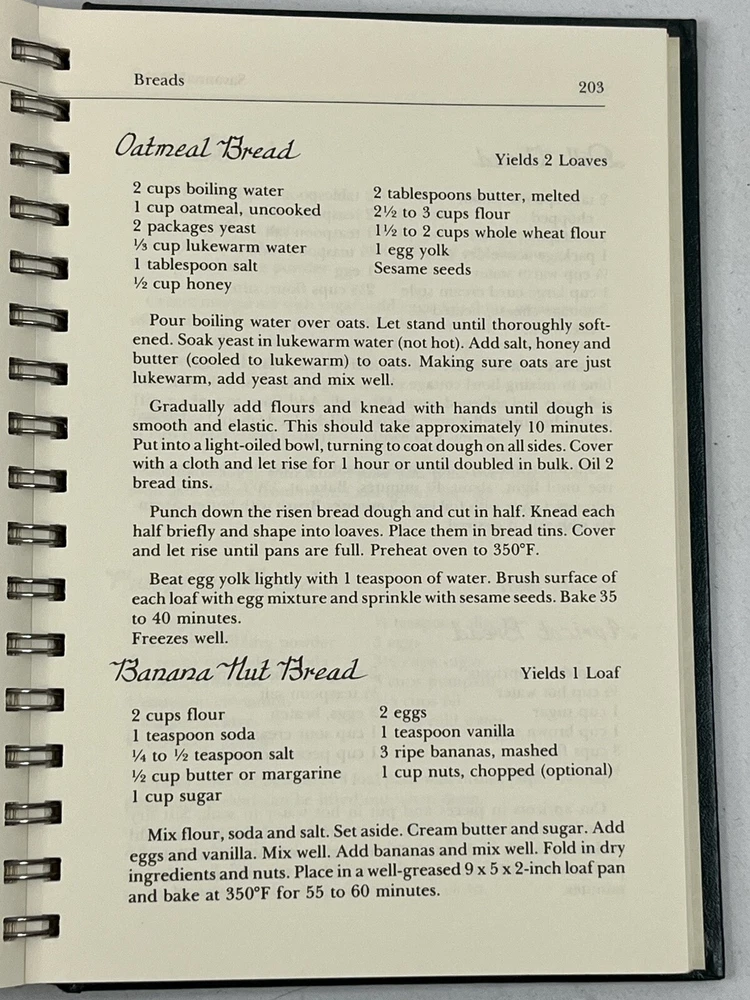 Breads 203
Oatmeal Bread Yields 2 Loaves
2 cups boiling water
1 cup oatmeal, uncooked
2 packages yeast
⅓ cup lukewarm water
1 tablespoon salt
½ cup honey
2 tablespoons butter, melted
2½ to 3 cups flour
1½ to 2 cups whole wheat flour
1 egg yolk
Sesame seeds
Pour boiling water over oats. Let stand until thoroughly soft-
ened. Soak yeast in lukewarm water (not hot). Add salt, honey and
butter (cooled to lukewarm) to oats. Making sure oats are just
lukewarm, add yeast and mix well.
Gradually add flours and knead with hands until dough is
smooth and elastic. This should take approximately 10 minutes.
Put into a light-oiled bowl, turning to coat dough on all sides. Cover
with a cloth and let rise for 1 hour or until doubled in bulk. Oil 2
bread tins.
Punch down the risen bread dough and cut in half. Knead each
half briefly and shape into loaves. Place them in bread tins. Cover
and let rise until pans are full. Preheat oven to 350°F.
Beat egg yolk lightly with 1 teaspoon of water. Brush surface of
each loaf with egg mixture and sprinkle with sesame seeds. Bake 35
to 40 minutes.
Freezes well.
Banana Nut Bread Yields 1 Loaf
2 cups flour
1 teaspoon soda
¼ to ½ teaspoon salt
½ cup butter or margarine
1 cup sugar
2 eggs
1 teaspoon vanilla
3 ripe bananas, mashed
1 cup nuts, chopped (optional)
Mix flour, soda and salt. Set aside. Cream butter and sugar. Add
eggs and vanilla. Mix well. Add bananas and mix well. Fold in dry
ingredients and nuts. Place in a well-greased 9 x 5 x 2-inch loaf pan
and bake at 350°F for 55 to 60 minutes.